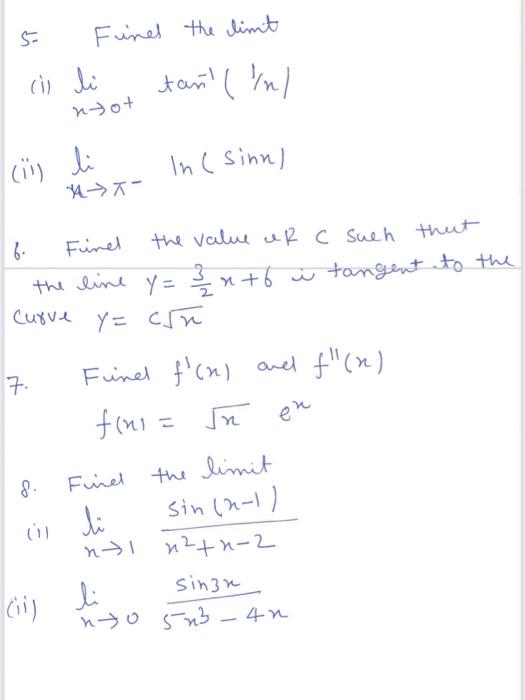 5. Find the limit
(i) li x→0+ tan⁻¹(1/x)
(ii) li x→π- ln(sinx)
6. Find the value of C such that
the line y = 3/2 x+6 is tangent to the
curve y = c√x
7. Find f'(x) and f''(x)
f(x) = √x eˣ
8. Find the limit
(i) li x→1 sin(x-1) / x²+x-2
(ii) li x→0 sin3x / 5x³ - 4x